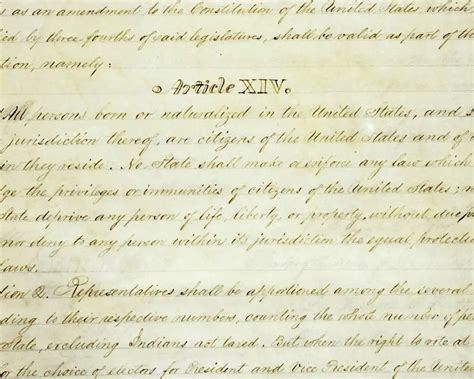 as an amendment to the Constitution of the United States, which
ied by three fourths of said legislatures, shall be valid as part of the
tion, namely:
Article XIV.
All persons born or naturalized in the United States, and s
jurisdiction thereof, are citizens of the United States and of
in they reside. No State shall make or enforce any law which
ge the privileges or immunities of citizens of the United States;
State deprive any person of life, liberty, or property, without due
nor deny to any person within its jurisdiction the equal protectio
laws.
tion 2. Representatives shall be apportioned among the several
ding to their respective numbers, counting the whole number of pe
State, excluding Indians not taxed. But when the right to vote at
or the choice of electors for President and Vice President of the United